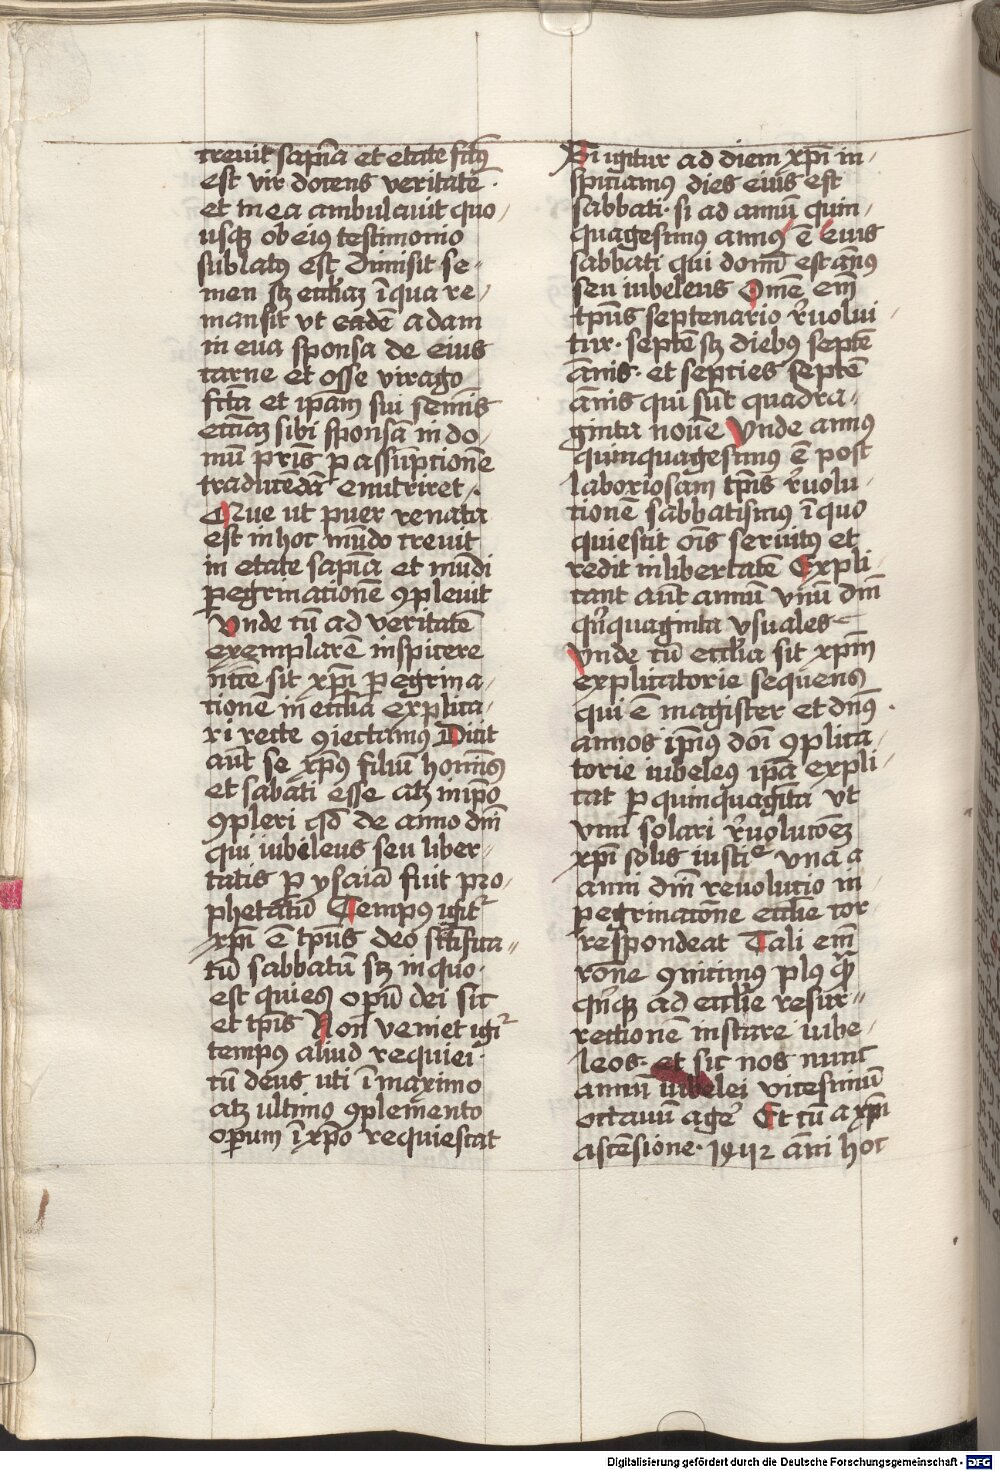 creuit sapiēa et etate fct̄us
est vir docens veritatē ·
et in ea ambulauit quo/
usqꝫ ob eius testimonio
sublatꝰ est Dimisit se-
men sꝫ eccl̄iaꝫ ī qua re/
mansit vt eadē adam
in eua sponsa de eius
carne et osse virago
fct̄a et ip̄am sui semīs
eccl̄iaꝫ sibi sponsā in do/
mū pr̄is ꝑ assūptionē
traducēdā enutriret ·
Que ut puer renata
est in hoc mūdo creuit
in etate sapīa et mūdi
ꝑegrinationē ꝯpleuit
Vnde cū ad veritatē
exemplarē inspicere
nitē sit xp̄i ꝑegrina/
tionē in eccl̄ia explica/
ri recte ꝯiectamus Dicit
aūt se xp̄us filiū hominis
et sabati esse atꝫ in ip̄o
ꝯpleri qd̄ de anno dn̄i
qui iubileus seu liber-
tatis ꝑ ysaiā fuit pro/
phetatū Tempus igit᷑
xp̄i ē tp̄us deo sct̄ifica=
tū sabbatū sꝫ in quo ·
est quies opū dei sit
et tp̄is Non veniet igi᷑
tempus aliud requiei ·
cū deus uti ī maximo
atꝫ ultimo ꝯplemento
opum ī xp̄o requiescat
Si igitur ad diem xp̄i in/
spiciamus dies eius est
sabbati · si ad annū quin/
quagesimus annꝰ ē eius
sabbati qui domī est anus
seu iubeleus Omē em̄
tp̄us septenario r̄uolui
tur · septē sꝫ diebus septē
ānis · et septies septē
ānis qui sūt quadra/
ginta nouē Vnde annus
quinquagesimus ē post
laboriosam tp̄is r̄uolu/
tionē sabbatismus ī quo
quiescit oīs seruitus et
redit in libertatē Expli
cant aūt annū vnū dn̄i
qn̄quaginta vsuales
Vnde cū eccl̄ia sit xp̄m
explicatorie sequens
qui ē magister et dn̄s ·
annos ip̄ius domī ꝯplica/
torie iubeleꝰ ip̄a expli/
cat ꝑ quinquagīta vt
vnū solari r̄uolucōeꝫ
xp̄i solis iusticie vna a
anni dn̄i reuolutio in
ꝑegrinatōne eccl̄ie cor
respondeat Tali em̄
rōne ꝯnicimus plꝰ qꝫ
qn̄qꝫ ad eccl̄ie resur=
rectionē instare iube/
leos · et sic nos nunc
annū iubelei vicesimū
octauū age᷑ Et cū a xp̄i
ascēsione · 1412 āni hoc
Digitalisierung gefördert durch die Deutsche Forschungsgemeinschaft - DFG